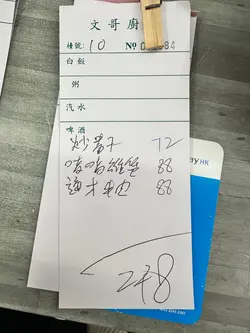 文哥廚
檯號: 10 No 84
白飯
粥
汽水
啤酒
炒蜆 72
啫啫雞煲 88
88
248
ay HK